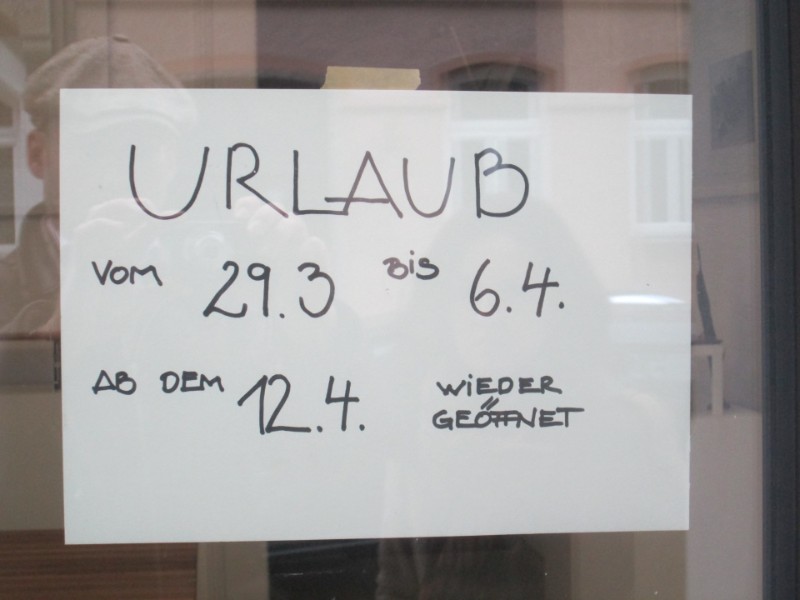 URLAUB
VOM 29.3 BIS 6.4.
AB DEM 12.4. WIEDER
GEÖFFNET